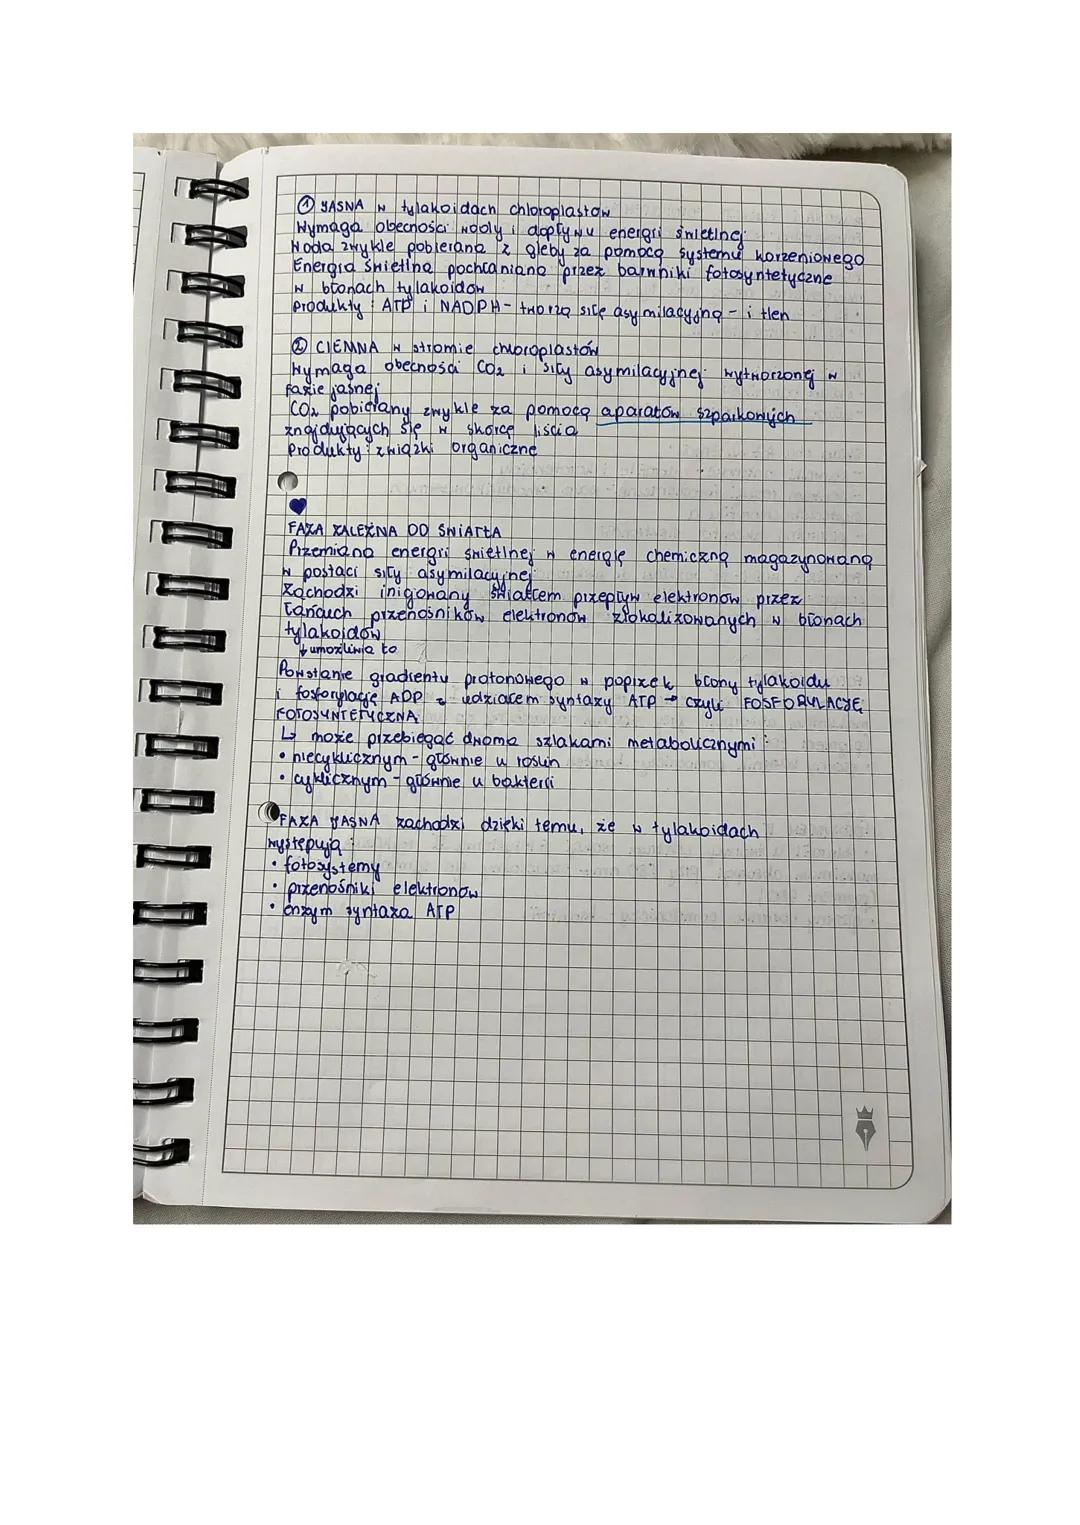 ① JASNA w tylakoidach chloroplastów
Wymaga obecności wody i dopływu energii świetlnej
Woda zwykle pobierana z gleby za pomocą systemu korzeniowego
Energia świetlna pochłaniana przez barwniki fotosyntetyczne
w błonach tylakoidów
Produkty: ATP i NADPH - tworzą siłę asymilacyjną - i tlen
② CIEMNA w stromie chloroplastów
Wymaga obecności CO₂ i siły asymilacyjnej wytworzonej w
fazie jasnej
CO₂ pobierany zwykle za pomocą aparatów szparkowych
znajdujących się w skórce liścia
Produkty: związki organiczne
FAZA ZALEŻNA OD ŚWIATŁA
Przemiana energii świetlnej w energię chemiczną magazynowaną
w postaci siły asymilacyjnej
Zachodzi inigowany światłem przepływ elektronów przez
łańcuch przenośników elektronów zlokalizowanych w błonach
tylakoidów
↓ umożliwia to
Powstanie gradientu protonowego w poprzek błony tylakoidu
i fosforylację ADP z udziałem syntazy ATP → czyli FOSFORYLACJĘ
FOTOSYNTETYCZNĄ
↳ może przebiegać dwoma szlakami metabolicznymi:
• niecyklicznym - głównie u roślin
• cyklicznym - głównie u bakterii
FAZA JASNA zachodzi dzięki temu, że w tylakoidach
występują:
• fotosystemy
• przenośniki elektronów
• enzym syntaza ATP